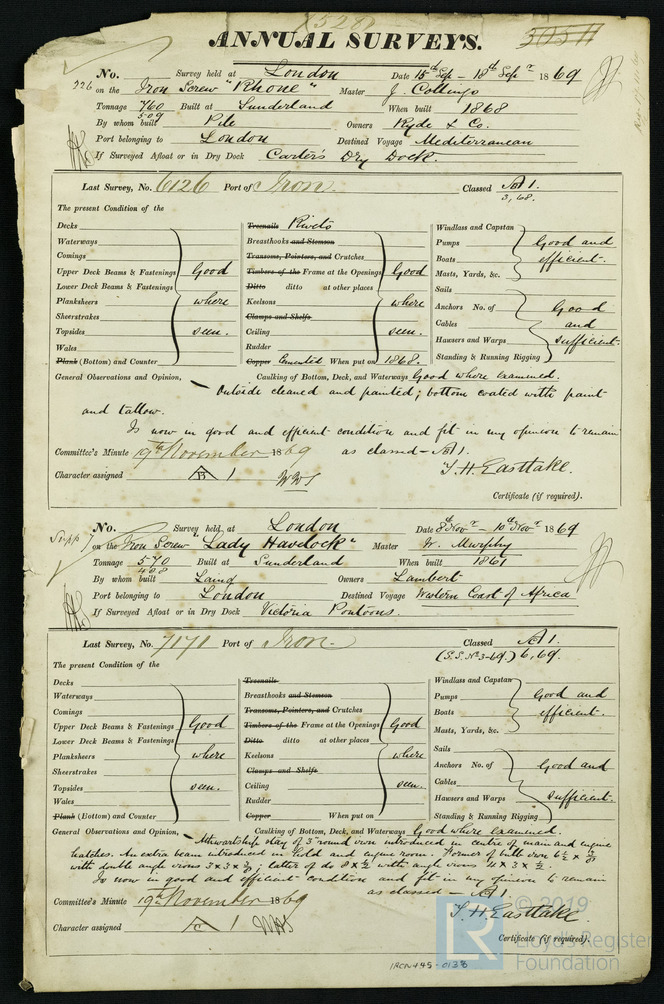 ANNUAL SURVEYS.
No. Survey held at London Date 15th Sep - 18th Sepr 1869
226 on the Iron Screw "Rhone" Master J. Collings
Tonnage 760 Built at Sunderland When built 1868
509
By whom built Pile Owners Ryde & Co.
Port belonging to London Destined Voyage Mediterranean
If Surveyed Afloat or in Dry Dock Carter's Dry Dock.
Last Survey, No. 6126 Port of Iron Classed A1.
3,68.
The present Condition of the
Decks Treenails Rivets Windlass and Capstan
Waterways Breasthooks and Stemson Pumps Good and
Comings Transoms, Pointers, and Crutches Boats efficient.
Upper Deck Beams & Fastenings Good Timbers of the Frame at the Openings Good Masts, Yards, &c.
Lower Deck Beams & Fastenings Ditto ditto at other places Sails
Planksheers where Keelsons where Anchors No. of Good
Sheerstrakes Clamps and Shelfs Cables and
Topsides seen. Ceiling seen. Hawsers and Warps sufficient.
Wales Rudder
Plank (Bottom) and Counter Copper Cemented When put on 1868. Standing & Running Rigging
General Observations and Opinion, Caulking of Bottom, Deck, and Waterways Good where examined.
Outside cleaned and painted; bottom coated with paint
and tallow.
Is now in good and efficient condition and fit in my opinion to remain
Committee's Minute 9th November 1869 as classed - A1.
Character assigned B 1 T. H. Eastlake.
Certificate (if required).
No. Survey held at London Date 8th Novr - 10th Novr 1869
on the Iron Screw "Lady Havelock" Master W. Murphy
Tonnage 570 Built at Sunderland When built 1861
408
By whom built Laing Owners Lambert
Port belonging to London Destined Voyage Western Coast of Africa
If Surveyed Afloat or in Dry Dock Victoria Pontoons.
Last Survey, No. 7171 Port of Iron Classed A1.
(S.S. No 3-69.) 6,69.
The present Condition of the
Decks Treenails Windlass and Capstan
Waterways Breasthooks and Stemson Pumps Good and
Comings Transoms, Pointers, and Crutches Boats efficient.
Upper Deck Beams & Fastenings Good Timbers of the Frame at the Openings Good Masts, Yards, &c.
Lower Deck Beams & Fastenings Ditto ditto at other places Sails
Planksheers where Keelsons where Anchors No. of Good and
Sheerstrakes Clamps and Shelfs Cables
Topsides seen. Ceiling seen. Hawsers and Warps sufficient.
Wales Rudder
Plank (Bottom) and Counter Copper When put on Standing & Running Rigging
General Observations and Opinion, Caulking of Bottom, Deck, and Waterways Good where examined.
Athwartship stay of 3" round iron introduced in centre of main and engine
hatches. An extra beam introduced in hold and engine room. Former of bulb iron 6½ x
with double angle irons 3 x 3 x latter of do 8 x ½ with angle irons x 3 x ½.
Is now in good and efficient condition and fit in my opinion to remain
as classed - A1.
Committee's Minute 19th November 1869
Character assigned A 1 T. H. Eastlake.
Certificate (if required).
© 2019
LR Lloyd's Register
Foundation
IRON 445-0138